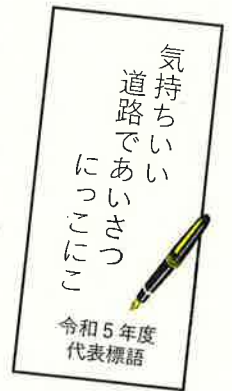 気持ちいい
道路であいさつ
にっこにこ
令和5年度
代表標語